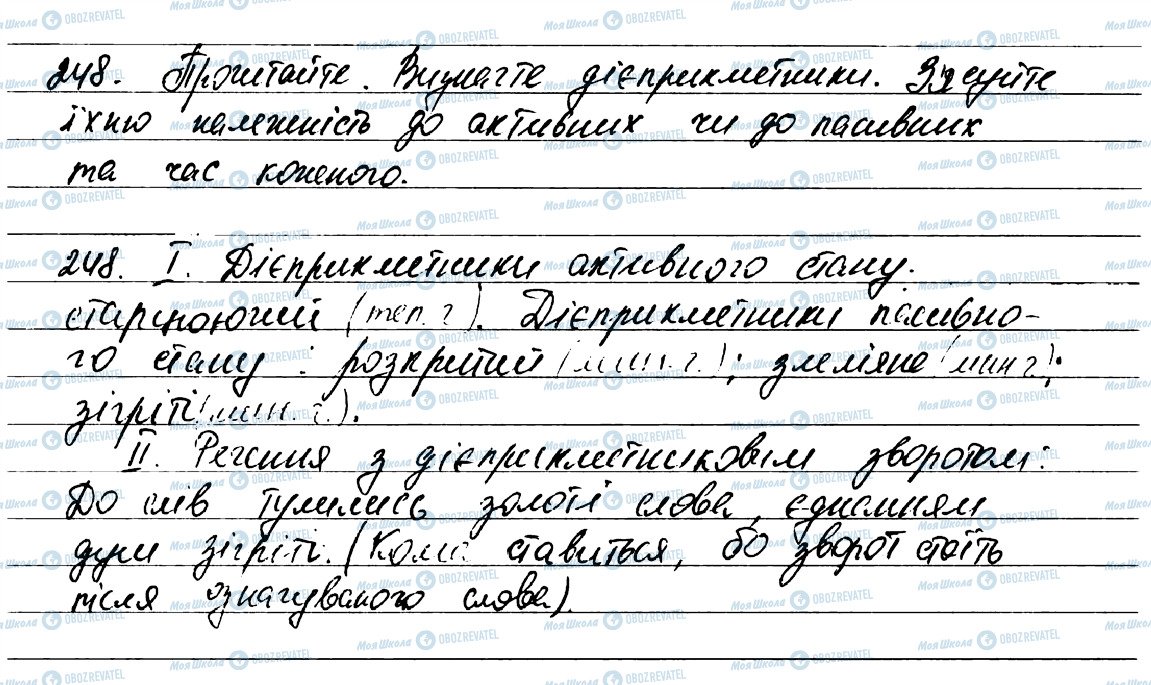 248. Прочитайте. Визначте дієприкметники. З'ясуйте
їхню належність до активних чи до пасивних
та час кожного.
248. I. Дієприкметники активного стану:
старіюючий (теп. ч). Дієприкметники пасивно-
го стану: розкритий (мин. ч.); зчеліяне (мин ч);
зігріті (мин. ч.).
II. Речення з дієприкметниковим зворотом:
До слів тулились золоті слова, єднанням
душ зігріті. (Кома ставиться, бо зворот стоїть
після означуваного слова).